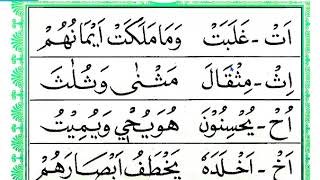 اَتْ - غَلَبَتْ وَمَا مَلَكَتْ اَيْمَانُهُمْ
اِثْ - مِثْقَالَ مَثْنٰى وَثُلٰثَ
اُحْ - يُحْسِنُوْنَ هُوَ يُحْيٖ وَيُمِيْتُ
اَخْ - اَخْلَدَهٗ يَخْطَفُ اَبْصَارَهُمْ